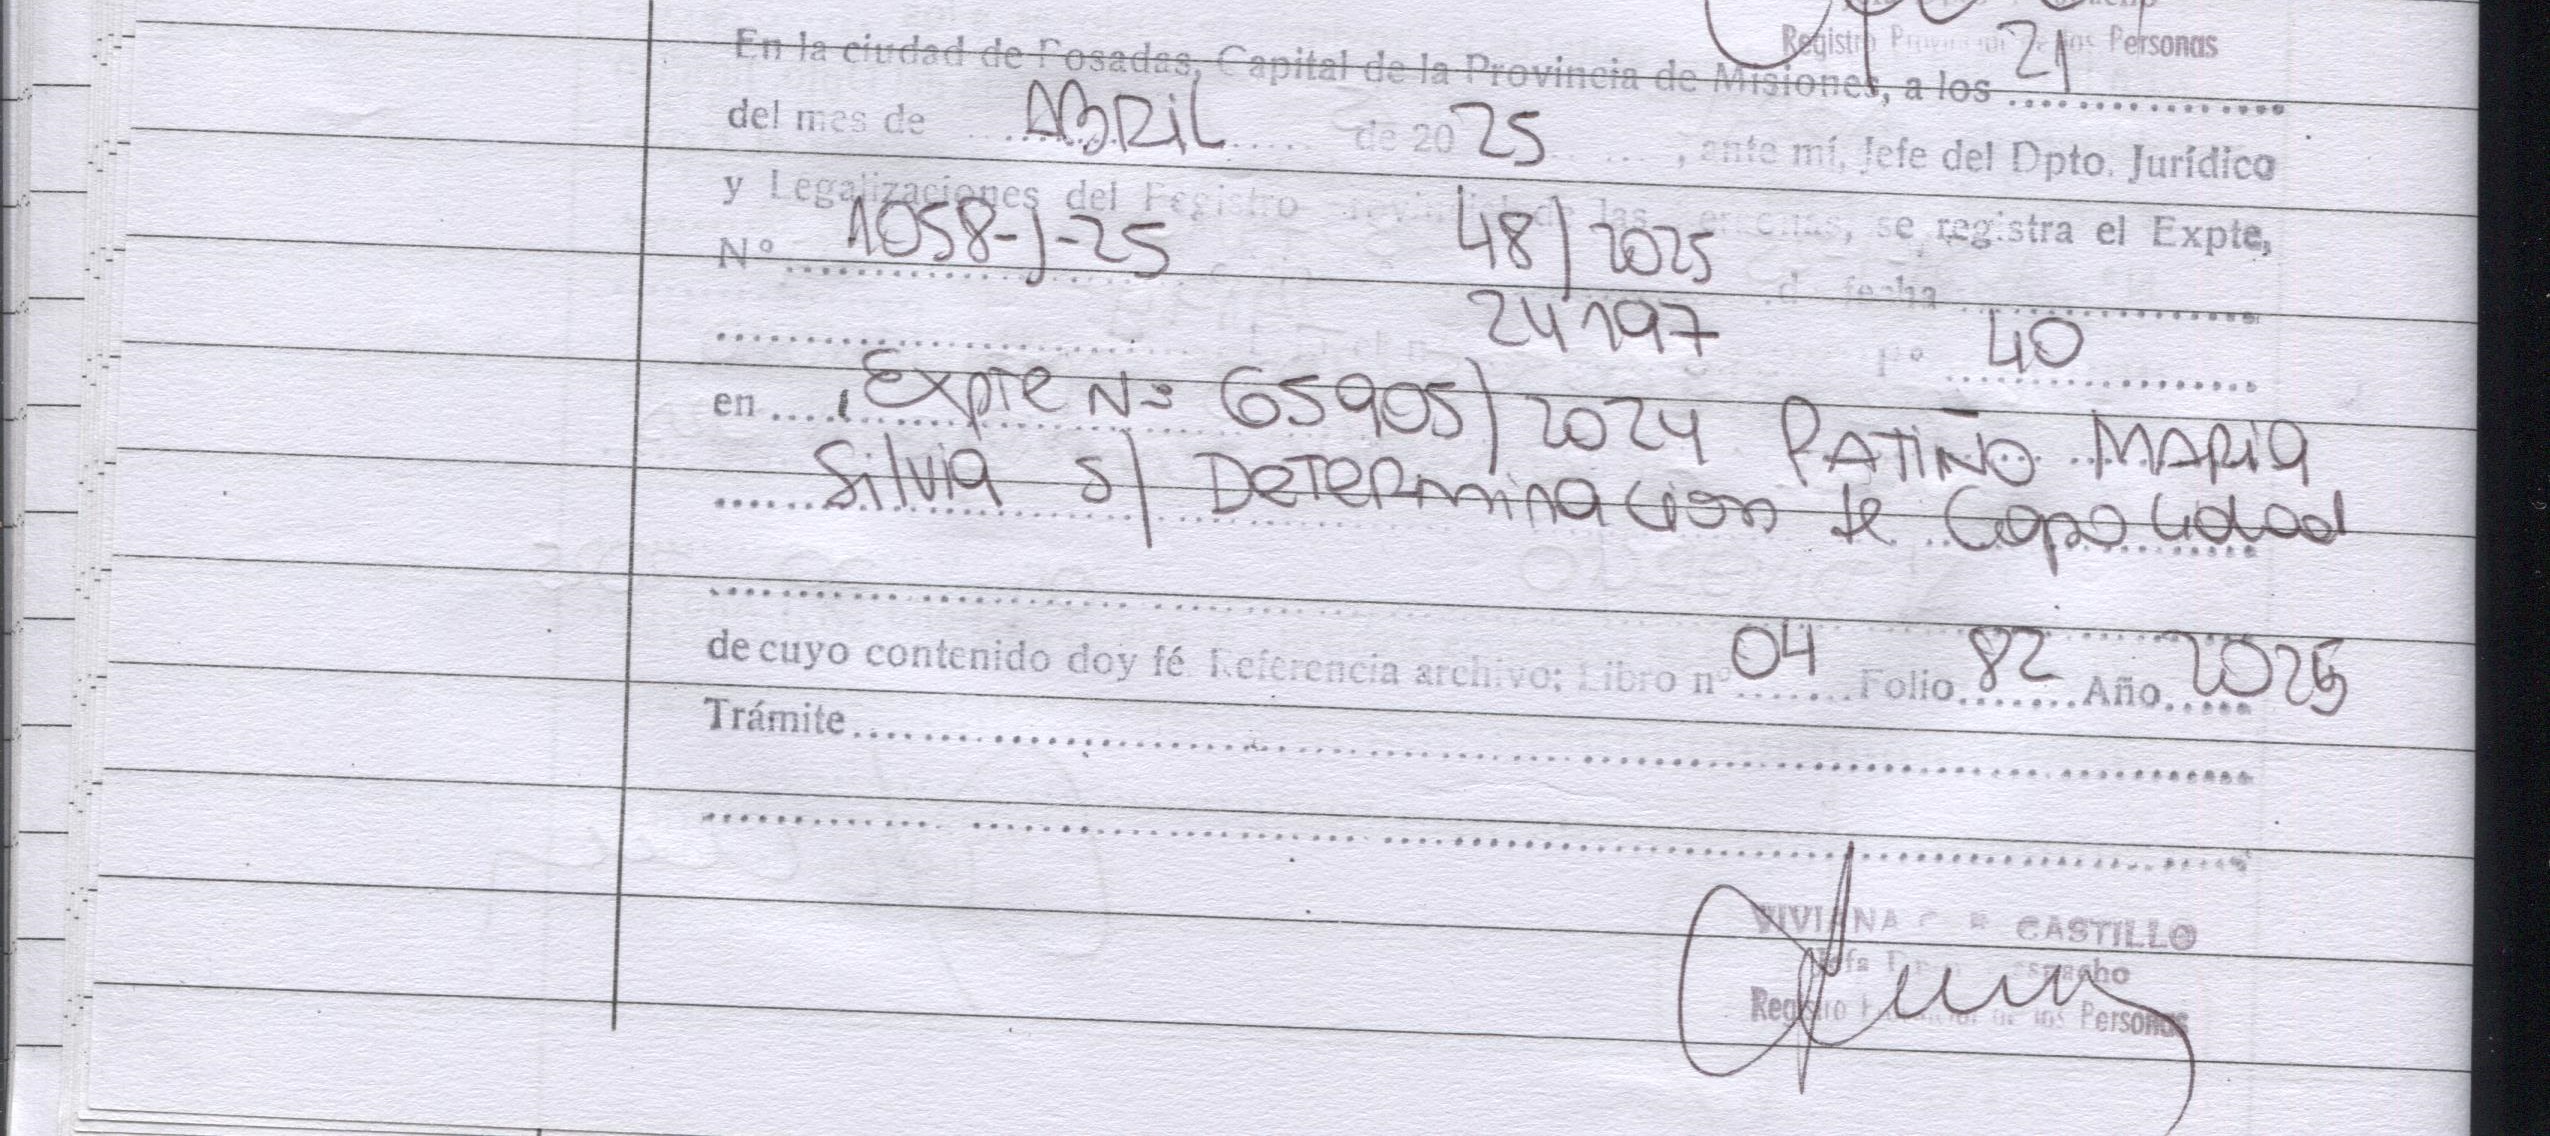 Registro Provincial de los Personas
En la ciudad de Posadas, Capital de la Provincia de Misiones, a los 21
del mes de ABRIL de 2025, ante mí, Jefe del Dpto. Jurídico
y Legalizaciones del Registro Provincial de las Personas, se registra el Expte,
Nº 1058-J-25 48/2025 de fecha
24197 pº 40
en Expte Nº 65905/2024 PATIÑO MARIA
Silvia s/ DETERMINACION de Capacidad
de cuyo contenido doy fé. Referencia archivo; Libro nº 04 Folio 82 Año 2025
Trámite
VIVIANA CASTILLO
Jefa Despacho
Registro Provincial de los Personas